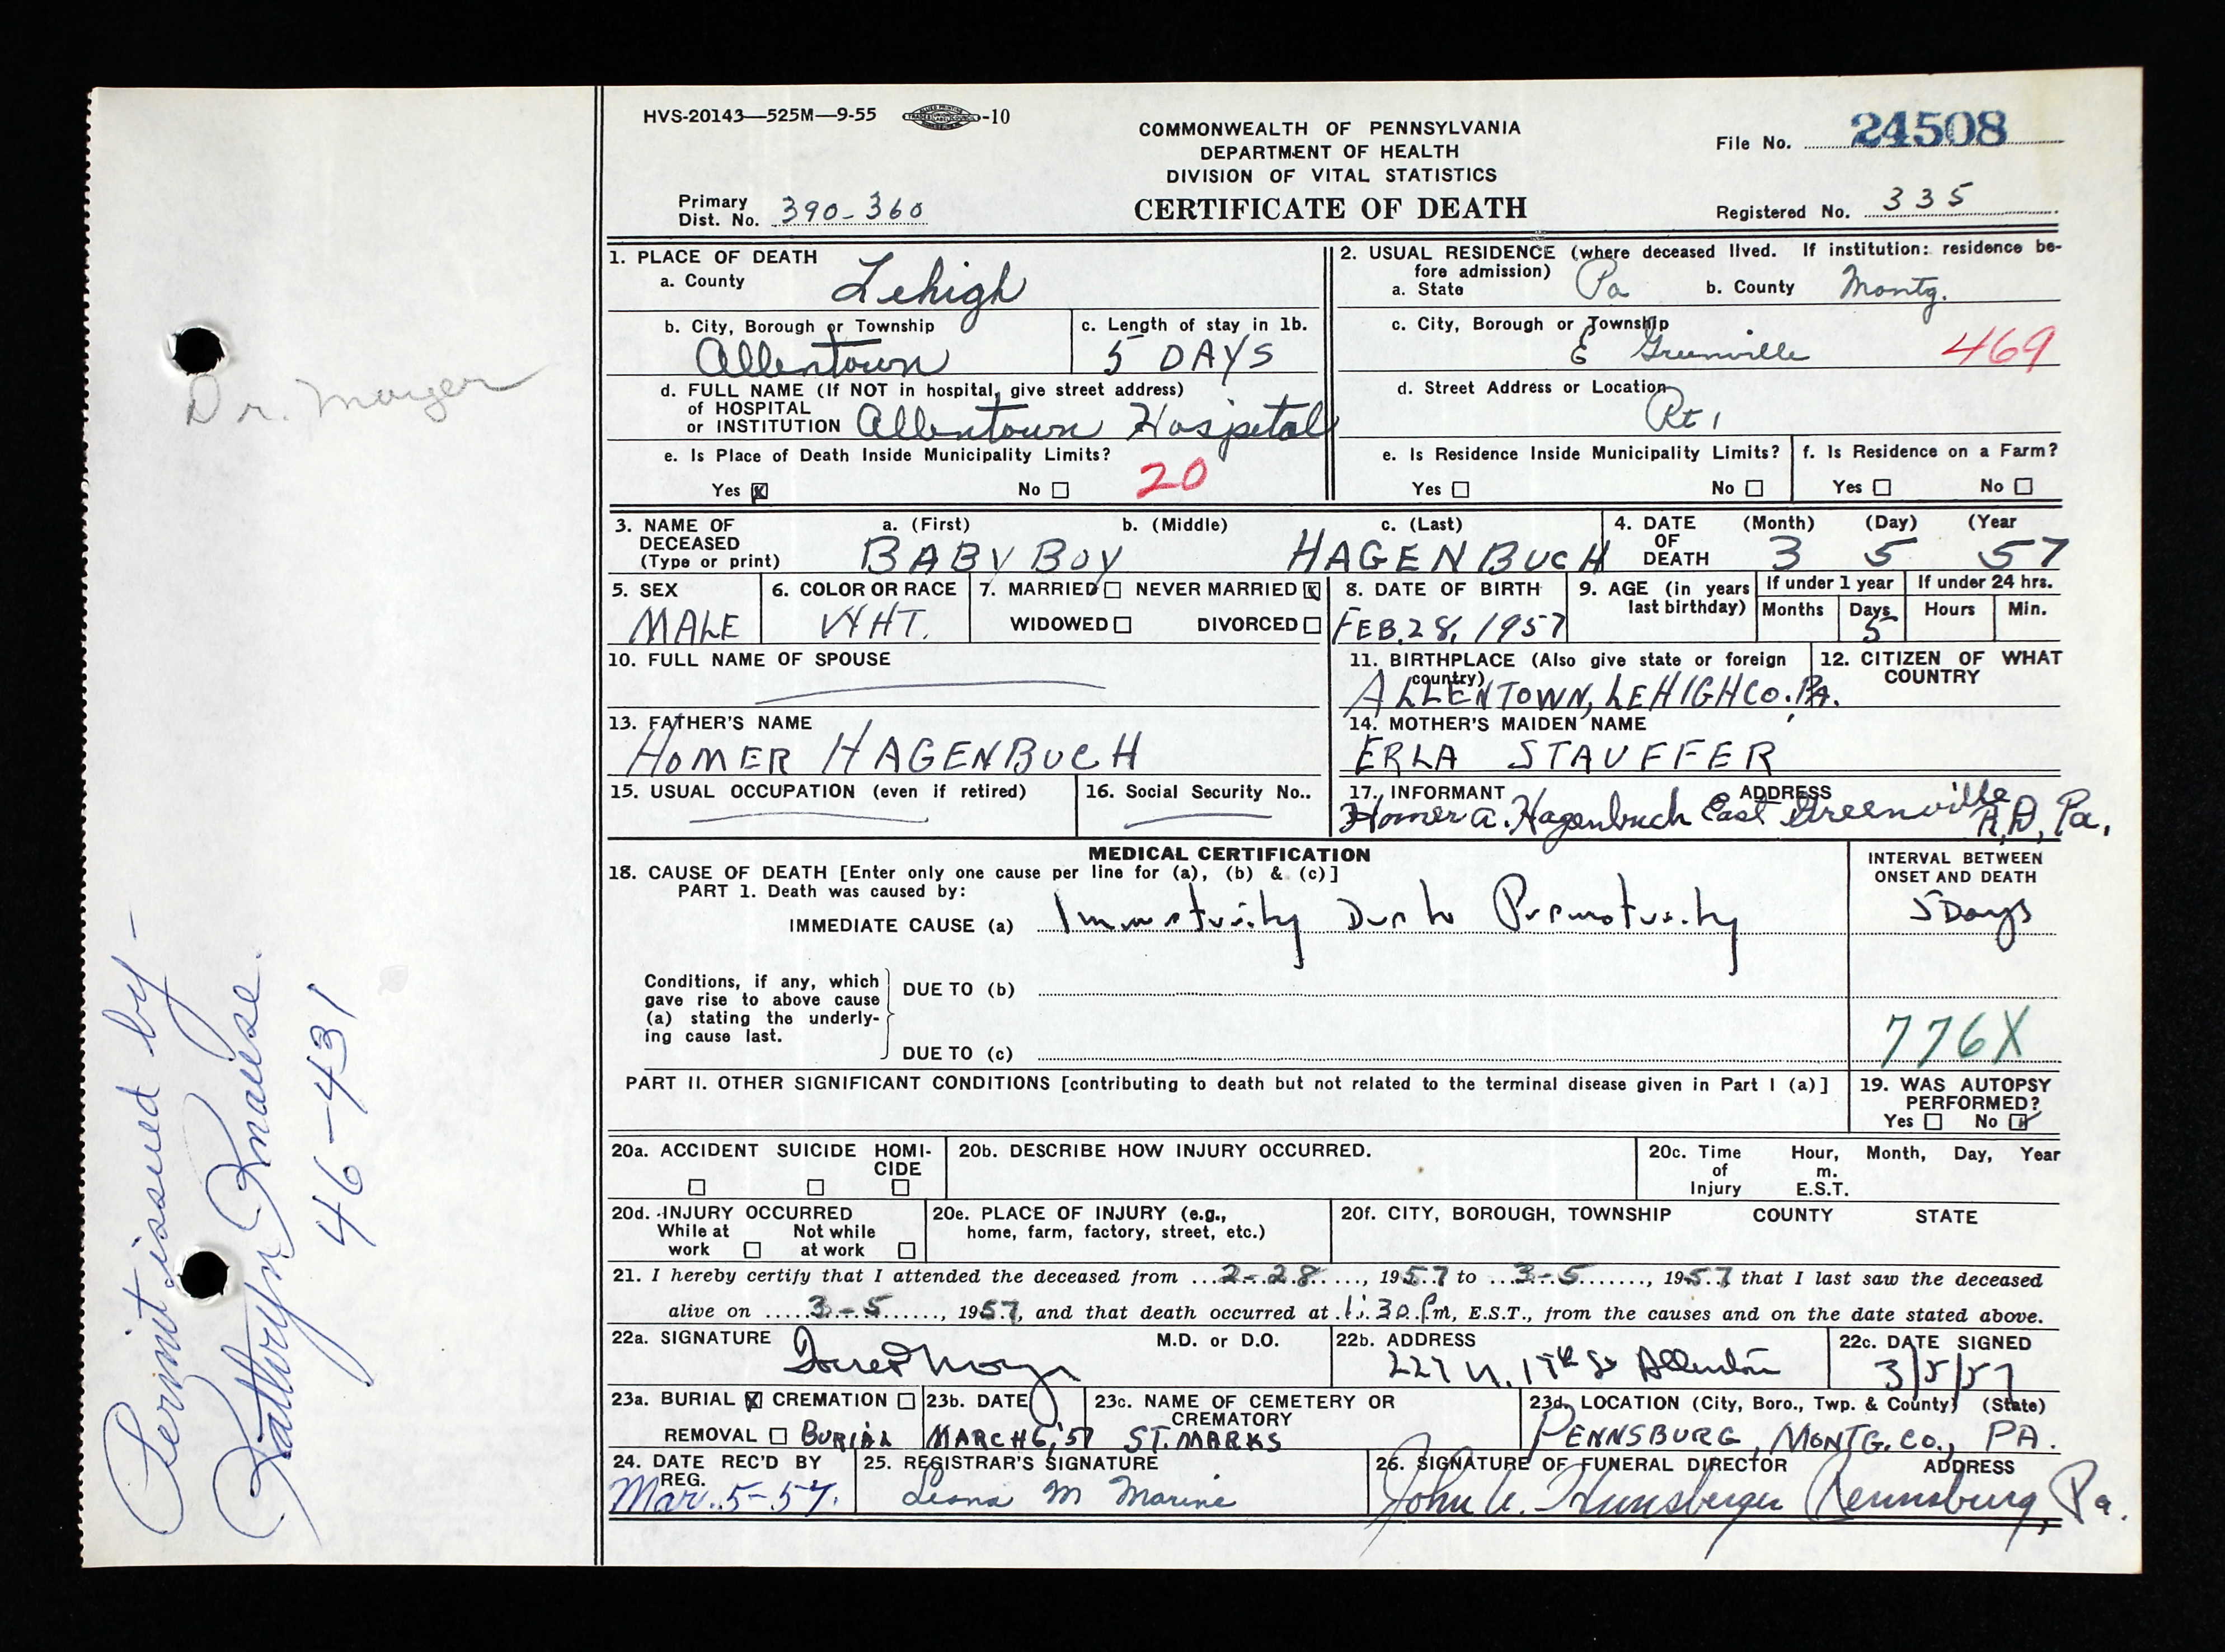 HVS-20143—525M—9-55 -10
COMMONWEALTH OF PENNSYLVANIA
DEPARTMENT OF HEALTH
DIVISION OF VITAL STATISTICS
CERTIFICATE OF DEATH
File No. 24508
Primary Dist. No. 390-360
Registered No. 335
1. PLACE OF DEATH
a. County Lehigh
2. USUAL RESIDENCE (where deceased lived. If institution: residence be-
fore admission)
a. State Pa b. County Montg.
b. City, Borough or Township Allentown
c. Length of stay in 1b. 5 DAYS
c. City, Borough or Township E Greenville 469
d. FULL NAME (If NOT in hospital, give street address)
of HOSPITAL
or INSTITUTION Allentown Hospital
d. Street Address or Location Rt 1
e. Is Place of Death Inside Municipality Limits?
Yes No 20
e. Is Residence Inside Municipality Limits?
Yes No
f. Is Residence on a Farm?
Yes No
3. NAME OF DECEASED (Type or print)
a. (First) b. (Middle) c. (Last)
BABY BOY HAGENBUCH
4. DATE OF DEATH (Month) (Day) (Year
3 5 57
5. SEX MALE
6. COLOR OR RACE WHT.
7. MARRIED NEVER MARRIED
WIDOWED DIVORCED
8. DATE OF BIRTH FEB. 28, 1957
9. AGE (in years last birthday)
If under 1 year If under 24 hrs.
Months Days Hours Min.
5
10. FULL NAME OF SPOUSE
11. BIRTHPLACE (Also give state or foreign country)
ALLENTOWN, LEHIGH CO. PA.
12. CITIZEN OF WHAT COUNTRY
13. FATHER'S NAME
HOMER HAGENBUCH
14. MOTHER'S MAIDEN NAME
ERLA STAUFFER
15. USUAL OCCUPATION (even if retired)
16. Social Security No..
17. INFORMANT ADDRESS
Homer A. Hagenbuch East Greenville R.D., Pa.
MEDICAL CERTIFICATION
18. CAUSE OF DEATH [Enter only one cause per line for (a), (b) & (c)]
PART 1. Death was caused by:
IMMEDIATE CAUSE (a) Immaturity Due to Prematurity
INTERVAL BETWEEN ONSET AND DEATH
5 Days
Conditions, if any, which
gave rise to above cause
(a) stating the underly-
ing cause last.
DUE TO (b)
DUE TO (c)
776X
PART II. OTHER SIGNIFICANT CONDITIONS [contributing to death but not related to the terminal disease given in Part I (a)]
19. WAS AUTOPSY PERFORMED?
Yes No
20a. ACCIDENT SUICIDE HOMI-
CIDE
20b. DESCRIBE HOW INJURY OCCURRED.
20c. Time of Injury Hour, Month, Day, Year
m.
E.S.T.
20d. INJURY OCCURRED
While at work Not while at work
20e. PLACE OF INJURY (e.g.,
home, farm, factory, street, etc.)
20f. CITY, BOROUGH, TOWNSHIP COUNTY STATE
21. I hereby certify that I attended the deceased from 2-28, 1957 to 3-5, 1957 that I last saw the deceased
alive on 3-5, 1957, and that death occurred at 1:30 Pm, E.S.T., from the causes and on the date stated above.
22a. SIGNATURE M.D. or D.O.
22b. ADDRESS 227 N. 17th St
22c. DATE SIGNED 3/5/57
23a. BURIAL CREMATION
REMOVAL BURIAL
23b. DATE MARCH 6, '57
23c. NAME OF CEMETERY OR CREMATORY
ST. MARKS
23d. LOCATION (City, Boro., Twp. & County) (State)
PENNSBURG, MONTG. CO., PA.
24. DATE REC'D BY REG. Mar. 5-57.
25. REGISTRAR'S SIGNATURE
Leona M Marine
26. SIGNATURE OF FUNERAL DIRECTOR ADDRESS
John U. Hunsberger Pennsburg, Pa.
Dr. Moyer
Permit issued by -
Kathryn Knause.
46-431